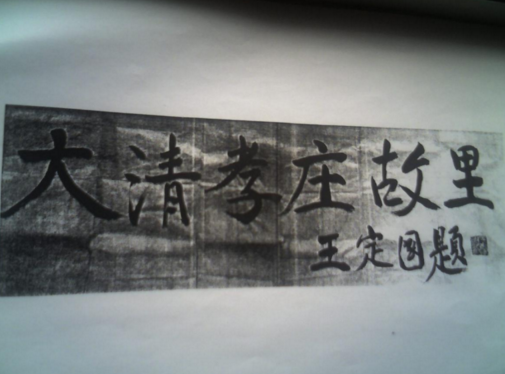 大清孝庄故里
王定国题